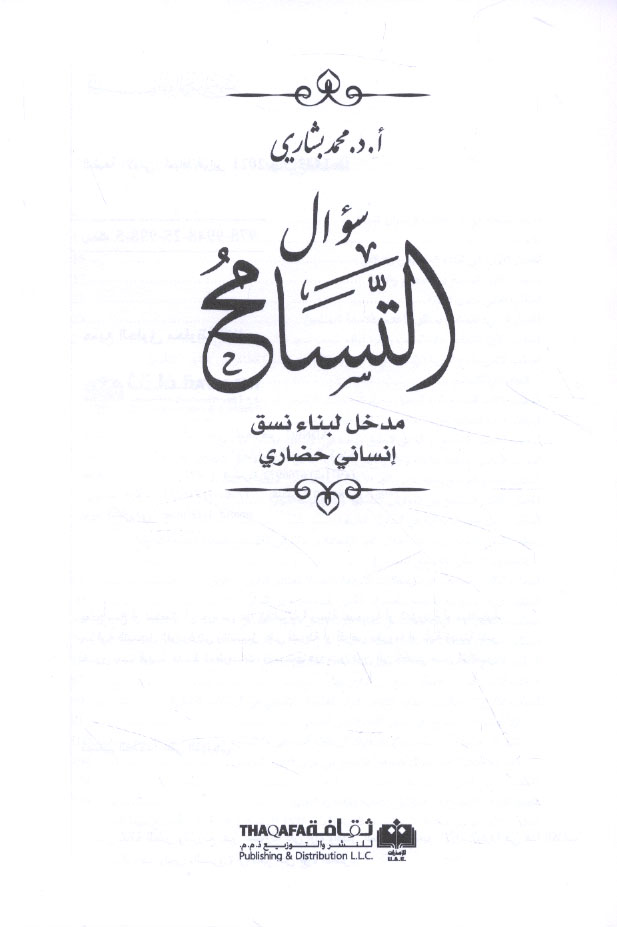 أ. د. محمد بشاري
سؤال
التَّسَامُح
مدخل لبناء نسق
إنساني حضاري
THAQAFA ثقافة
للنشر والتوزيع ذ.م.م.
Publishing & Distribution L.L.C.
الإمارات
U.A.E.